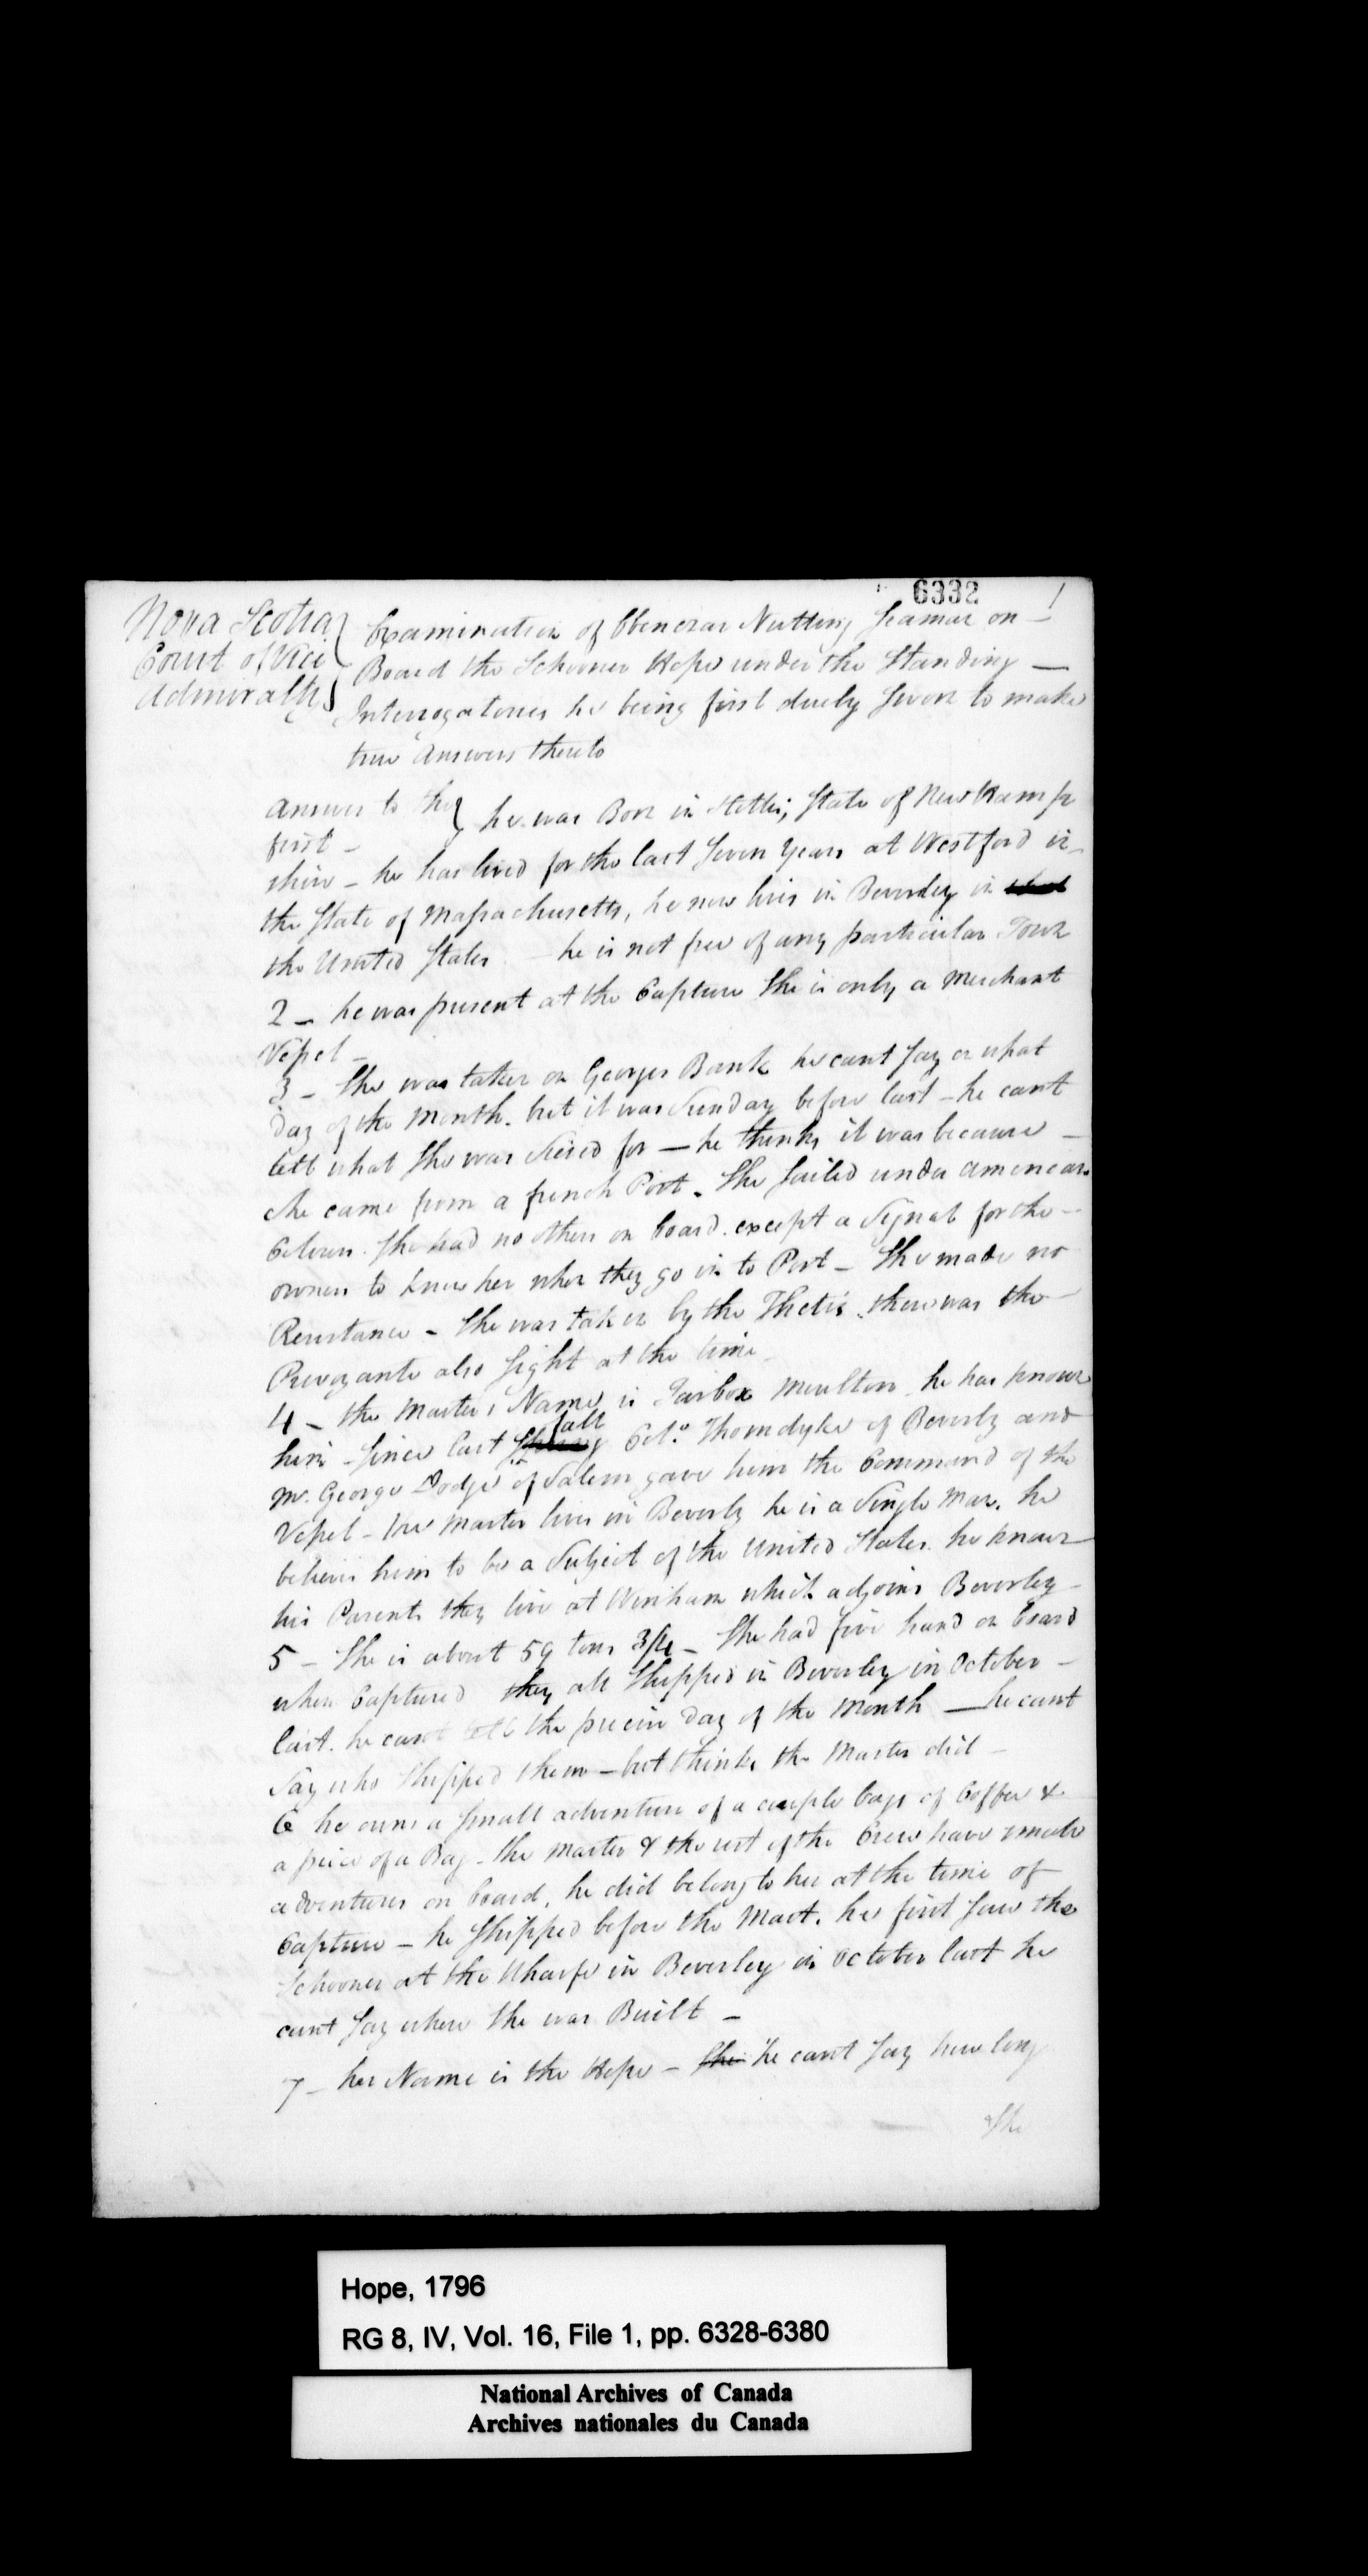 6332 1
Nova Scotia
Court of Vice
Admiralty
Examination of Ebenezar Nutting Seaman on —
Board the Schooner Hope under the Standing —
Interrogatories he being first duely Sworn to make
true Answers thereto
Answer to the
first —
he was Born in State of New Hamp
shire — he has lived for the last Seven Years at Westford in
the State of Massachusetts, he now lives in Beverley in
the United States — he is not free of any particular Town
2 — he was present at the Capture She is only a Merchant
Vessel —
3 — She was taken on Georges Bank he cant Say on what
day of the Month. but it was Sunday before last — he cant
tell what She was Seized for — he thinks it was because —
She came from a french Port. She Sailed under American
Colours. She had no others on board. except a Signal for the —
owners to know her when they go in to Port — She made no
Resistance — She was taken by the Thetis. there was the
Prevoyante also Sight at the time —
4 — the Masters Name is Tarbox Moulton he has known
him Since last Spring fall Colo. Thorndyke of Beverly and
Mr. George Dodge of Salem gave him the Command of the
Vessel — the Master lives in Beverly he is a Single Man. he
believes him to be a Subject of the United States. he knows
his Parents they live at Wenham which adjoins Beverley —
5 — She is about 59 tons 3/4 — She had five hands on board
when Captured they all Shipped in Beverley in October —
last. he cant tell the precise day of the Month — he cant
Say who Shipped them — but thinks the Master did —
6 he owns a Small adventure of a couple bags of Coffee &
a piece of a Bag — the Master & the rest of the Crew have small
adventures on board, he did belong to her at the time of
Capture — he Shipped before the Mast. he first Saw the
Schooner at the Wharfe in Beverley in October last he
cant Say where She was Built —
7 — her Name is the Hope — She he cant Say how long
She
Hope, 1796
RG 8, IV, Vol. 16, File 1, pp. 6328-6380
National Archives of Canada
Archives nationales du Canada